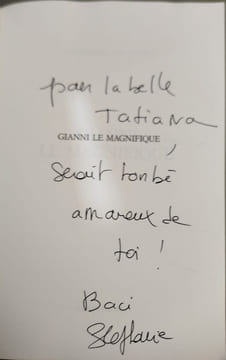 pour la belle
Tatiana
GIANNI LE MAGNIFIQUE
serait tombé
amoureux de
toi !
Baci
Stéflanie